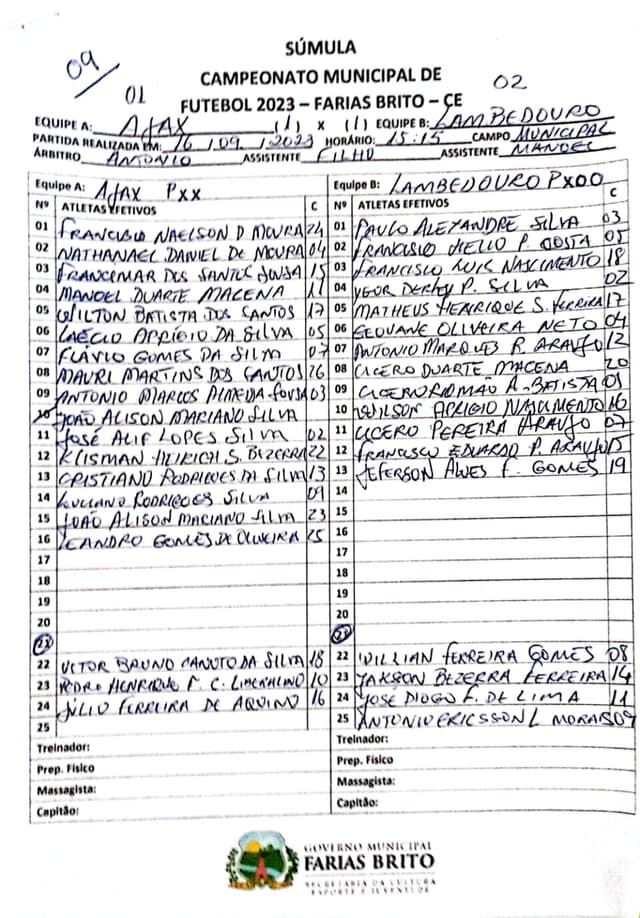 09/
SÚMULA
CAMPEONATO MUNICIPAL DE
01 02
FUTEBOL 2023 – FARIAS BRITO – CE
EQUIPE A: AJAX (1) X (1) EQUIPE B: LAMBEDOURO
PARTIDA REALIZADA EM: 16/09/2023 HORÁRIO: 15:15 CAMPO MUNICIPAL
ÁRBITRO ANTONIO ASSISTENTE FILHO ASSISTENTE MANOEL
Equipe A: AJAX Pxx
Nº ATLETAS EFETIVOS C
01 FRANCISCO NAELSON D MOURA 24
02 NATHANAEL DANIEL DE MOURA 04
03 FRANCIMAR DOS SANTOS SOUSA 15
04 MANOEL DUARTE MACENA 11
05 WILTON BATISTA DOS SANTOS 17
06 LAÉCIO APRIGIO DA SILVA 05
07 FLÁVIO GOMES DA SILVA 07
08 MAURI MARTINS DOS SANTOS 26
09 ANTONIO MARCOS ALMEDA SOUSA 03
10 JOÃO ALISON MARIANO SILVA
11 JOSÉ ALIF LOPES SILVA 02
12 KLISMAN S. BEZERRA 22
13 CRISTIANO RODRIGUES DA SILVA 13
14 LUCIANO RODRIGUES SILVA 09
15 JOÃO ALISON MACIANO SILVA 23
16 LEANDRO GOMES DE OLIVEIRA 25
17
18
19
20
21
22 VITOR BRUNO CANUTO DA SILVA 18
23 PEDRO HENRIQUE F. C. 10
24 JÚLIO FERREIRA DE AQUINO 16
25
Treinador:
Prep. Físico
Massagista:
Capitão:
Equipe B: LAMBEDOURO PXOO
C
Nº ATLETAS EFETIVOS
01 PAULO ALEXANDRE SILVA 03
02 FRANCISCO HELIO P. COSTA 05
03 FRANCISCO LUIS NASCIMENTO 18
04 YGOR P. SILVA 02
05 MATHEUS HENRIQUE S. FERREIRA 17
06 GEOVANE OLIVEIRA NETO 04
07 ANTONIO MARQUES R. ARAUJO 12
08 CICERO DUARTE MACENA 20
09 CICERO ROMÃO A. BATISTA 01
10 WILSON APRIGIO NASCIMENTO 10
11 CICERO PEREIRA ARAUJO 07
12 FRANCISCO EDUARDO P. ARAUJO 15
13 JEFERSON ALVES F. GOMES 19
14
15
16
17
18
19
20
21
22 WILLIAN FERREIRA GOMES 08
23 JAKSON BEZERRA FERREIRA 14
24 JOSÉ DIOGO F. DE LIMA 11
25 ANTONIO ERICSSON L MORAIS 09
Treinador:
Prep. Físico
Massagista:
Capitão:
GOVERNO MUNICIPAL
FARIAS BRITO
SECRETARIA DA CULTURA
ESPORTE E JUVENTUDE